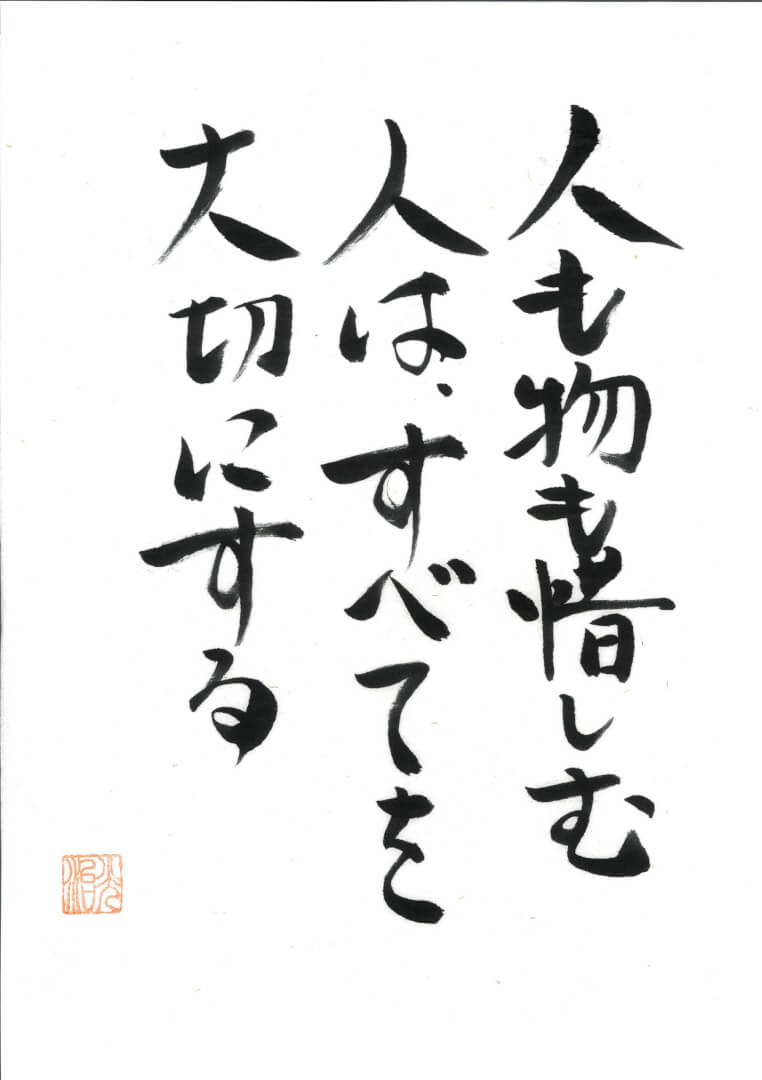 人も物も惜しむ
人は、すべてを
大切にする